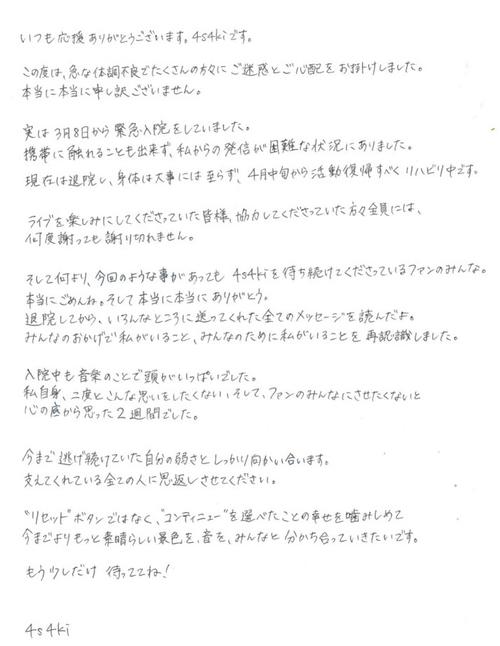 いつも応援ありがとうございます。4s4kiです。
この度は、急な体調不良でたくさんの方々にご迷惑とご心配をお掛けしました。
本当に本当に申し訳ございません。
実は3月8日から緊急入院をしていました。
携帯に触れることも出来ず、私からの発信が困難な状況にありました。
現在は退院し、身体は大事には至らず、4月中旬から活動復帰すべくリハビリ中です。
ライブを楽しみにしてくださっていた皆様、協力してくださっていた方々全員には、
何度謝っても謝り切れません。
そして何より、今回のような事があっても4s4kiを待ち続けてくださっているファンのみんな。
本当にごめんね。そして本当に本当にありがとう。
退院してから、いろんなところに送ってくれた全てのメッセージを読んだよ。
みんなのおかげで私がいること、みんなのために私がいることを再認識しました。
入院中も音楽のことで頭がいっぱいでした。
私自身、二度とこんな思いをしたくない、そして、ファンのみんなにさせたくないと
心の底から思った2週間でした。
今まで逃げ続けていた自分の弱さとしっかり向かい合います。
支えてくれている全ての人に恩返しさせてください。
"リセット"ボタンではなく、"コンティニュー"を選べたことの幸せを噛みしめて
今までよりもっと素晴らしい景色を、音を、みんなと分かち合っていきたいです。
もう少しだけ待っててね!
4s4ki